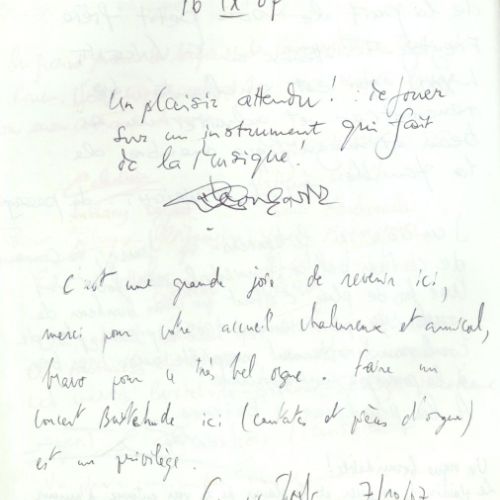 16 IX 07
Un plaisir attendu ! : de jouer
sur un instrument qui fait
de la Musique !
C'est une grande joie de revenir ici,
merci pour votre accueil chaleureux et amical,
bravo pour ce très bel orgue. Faire un
concert Buxtehude ici (cantates et pièces d'orgue)
est un privilège.
7/10/07